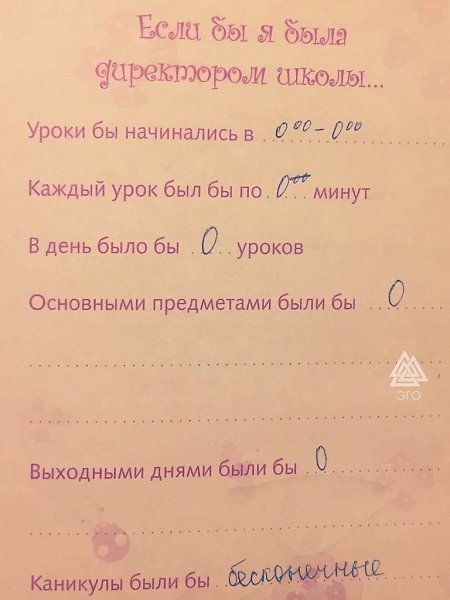 Если бы я была
директором школы...
Уроки бы начинались в 0⁰⁰ – 0⁰⁰
Каждый урок был бы по 0 минут
В день было бы 0 уроков
Основными предметами были бы 0
эго
Выходными днями были бы 0
Каникулы были бы бесконечные